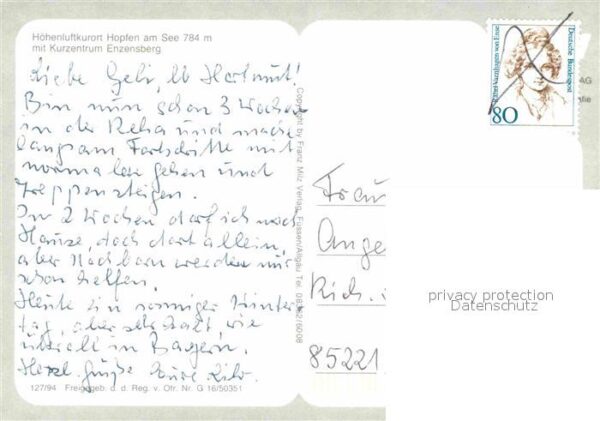 Höhenluftkurort Hopfen am See 784 m
mit Kurzentrum Enzensberg
Liebe Gebi, lb Hartmut!
Bin nun schon 3 Wochen
in der Reha und mache
langsam Fortschritte mit
normaler gehen und
Treppensteigen.
In 2 Wochen darf ich nach
Hause, doch dort allein,
aber Nachbarn werden mir
schon helfen.
Heute ein sonniger Winter
tag, aber sehr kalt, wie
überall in Bayern.
Herzl. Grüße Eure
127/94 Freigegeb. d. d. Reg. v. Obr. Nr. G 16/50351
Copyright by Franz Milz Verlag, Füssen/Allgäu Tel. 08362/6008
Deutsche Bundespost
80
AG
Frau
Ange
Rich.
85221
privacy protection
Datenschutz